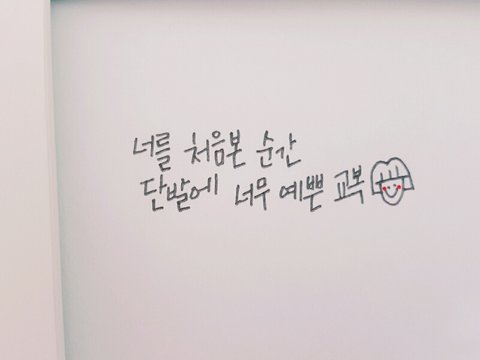 너를 처음본 순간
단발에 너무 예쁜 교복